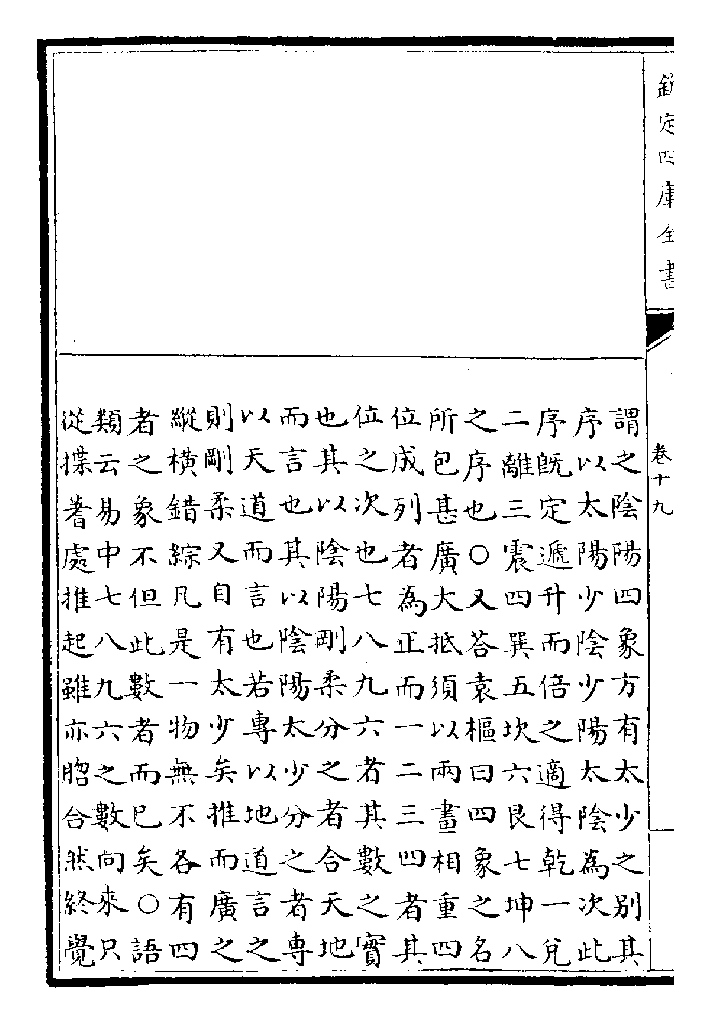 欽定四庫全書
卷十九
謂之陰陽四象方有太少之別其
序以太陽少陰少陽太陰為次此
序既定遞升而倍之適得乾一兌
二離三震四巽五坎六艮七坤八
之序也○又答袁樞曰四象之名
所包甚廣大抵須以兩畫相重四
位成列者為正而一二三四者其
位之次也七八九六者其數之實
也其以陰陽剛柔分之者合天地
而言也其以陰陽太少分之者専
以天道而言也若専以地道言之
則剛柔又自有太少矣推而廣之
縱橫錯綜凡是一物無不各有四
者之象不但此數者而已矣○語
類云易中七八九六之數向來只
從揲蓍處推起雖亦脗合然終覺